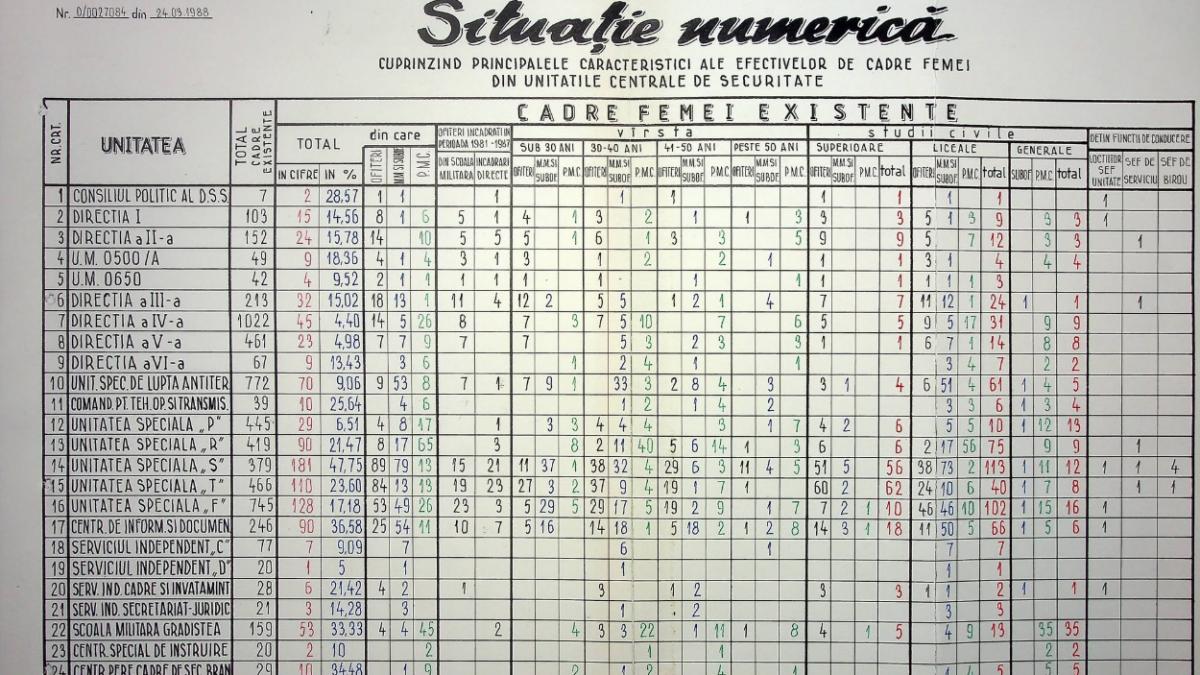 Nr. D/0027084 din 24.03.1988
Situație numerică
CUPRINZIND PRINCIPALELE CARACTERISTICI ALE EFECTIVELOR DE CADRE FEMEI
DIN UNITATILE CENTRALE DE SECURITATE
NR. CRT. UNITATEA TOTAL CADRE EXISTENTE CADRE FEMEI EXISTENTE
TOTAL din care OFITERI INCADRATI IN PERIOADA 1981-1987 vîrsta studii civile DETIN FUNCTII DE CONDUCERE
SUB 30 ANI 30-40 ANI 41-50 ANI PESTE 50 ANI SUPERIOARE LICEALE GENERALE
IN CIFRE IN % OFITERI MM SI SUBOF P.M.C. DIN SCOALA MILITARA INCADRARI DIRECTE OFITERI M.M SI SUBOF. P.M.C. OFITERI M.M SI SUBOF. P.M.C. OFITERI M.M SI SUBOF. P.M.C. OFITERI M.M SI SUBOF. P.M.C. OFITERI M.M SI SUBOF. P.M.C. total OFITERI M.M SI SUBOF. P.M.C. total SUBOF P.M.C. total LOCTIITOR SEF UNITATE SEF DE SERVICIU SEF DE BIROU
1 CONSILIUL POLITIC AL D.S.S. 7 2 28,57 1 1 1 1 1 1 1 1 1 1
2 DIRECTIA I 103 15 14,56 8 1 6 5 1 4 1 3 2 1 1 3 3 3 5 1 3 9 3 3 1
3 DIRECTIA a II-a 152 24 15,78 14 10 5 5 5 1 6 1 3 3 5 9 9 5 7 12 3 3 1
4 U.M. 0500/A 49 9 18,36 4 1 4 3 1 3 1 2 2 1 1 1 3 1 4 4 4
5 U.M. 0650 42 4 9,52 2 1 1 1 1 1 1 1 1 1 1 1 1 3
6 DIRECTIA a III-a 213 32 15,02 18 13 1 11 4 12 2 5 5 1 2 1 4 7 7 11 12 1 24 1 1 1
7 DIRECTIA a IV-a 1022 45 4,40 14 5 26 8 7 3 7 5 10 7 6 5 5 9 5 17 31 9 9
8 DIRECTIA a V-a 461 23 4,98 7 7 9 7 7 5 3 2 3 3 1 1 6 7 1 14 8 8
9 DIRECTIA a VI-a 67 9 13,43 3 6 1 2 4 1 1 3 4 7 2 2
10 UNIT. SPEC. DE LUPTA ANTITER 772 70 9,06 9 53 8 7 1 7 9 1 33 3 2 8 4 3 3 1 4 6 51 4 61 1 4 5
11 COMAND. PT. TEH. OP. SI TRANSMIS. 39 10 25,64 4 6 1 2 1 4 2 3 3 6 1 3 4
12 UNITATEA SPECIALA „P” 445 29 6,51 4 8 17 1 3 3 4 4 4 3 1 7 4 2 6 5 5 10 1 12 13
13 UNITATEA SPECIALA „R” 419 90 21,47 8 17 65 3 8 2 11 40 5 6 14 1 3 6 6 2 17 56 75 9 9 1
14 UNITATEA SPECIALA „S” 379 181 47,75 89 79 13 15 21 11 37 1 38 32 4 29 6 3 11 4 5 51 5 56 38 73 2 113 1 11 12 1 1 4
15 UNITATEA SPECIALA „T” 466 110 23,60 84 13 13 19 23 27 3 2 37 9 4 19 1 7 1 60 2 62 24 10 6 40 1 7 8 1 1
16 UNITATEA SPECIALA „F” 745 128 17,18 53 49 26 23 3 5 29 5 29 17 5 19 2 9 1 7 7 2 1 10 46 46 10 102 1 15 16 1
17 CENTR. DE INFORM. SI DOCUMEN. 246 90 36,58 25 54 11 10 7 5 16 14 18 1 5 18 2 1 2 8 14 3 1 18 11 50 5 66 1 5 6 1
18 SERVICIUL INDEPENDENT „C” 77 7 9,09 7 6 1 7 7
19 SERVICIUL INDEPENDENT „D” 20 1 5 1 1 1 1
20 SERV. IND. CADRE SI INVATAMINT 28 6 21,42 4 2 1 3 1 2 3 3 1 1 2 1 1 1
21 SERV. IND. SECRETARIAT-JURIDIC 21 3 14,28 3 1 2 3 3
22 SCOALA MILITARA GRADISTEA 159 53 33,33 4 4 45 2 4 3 3 22 1 11 1 8 4 1 5 4 9 13 35 35
23 CENTR. SPECIAL DE INSTRUIRE 20 2 10 2 1 1 2 2
24 CENTR. PERF. CADRE DE SEC. BRAN 29 10 34,48 1 9 2 1 4 5 5 5